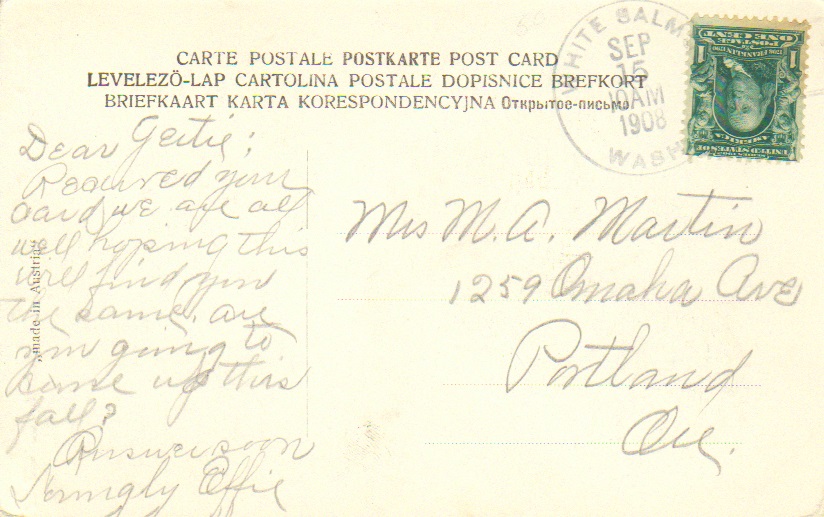 CARTE POSTALE POSTKARTE POST CARD
LEVELEZÖ-LAP CARTOLINA POSTALE DOPISNICE BREFKORT
BRIEFKAART KARTA KORESPONDENCYJNA Открытое-письмо
WHITE SALM
SEP
15
10AM
1908
WASH
UNITED STATES OF
AMERICA
1 1
POSTAGE
ONE CENT
Dear Gertie;
Received your
card, we are all
well hoping this
will find you
the same, are
you going to
come up this
fall?
Answer soon
Effie
"made in Austria"
Mrs M. A. Martin
1259 Omaha Ave
Portland
Ore.